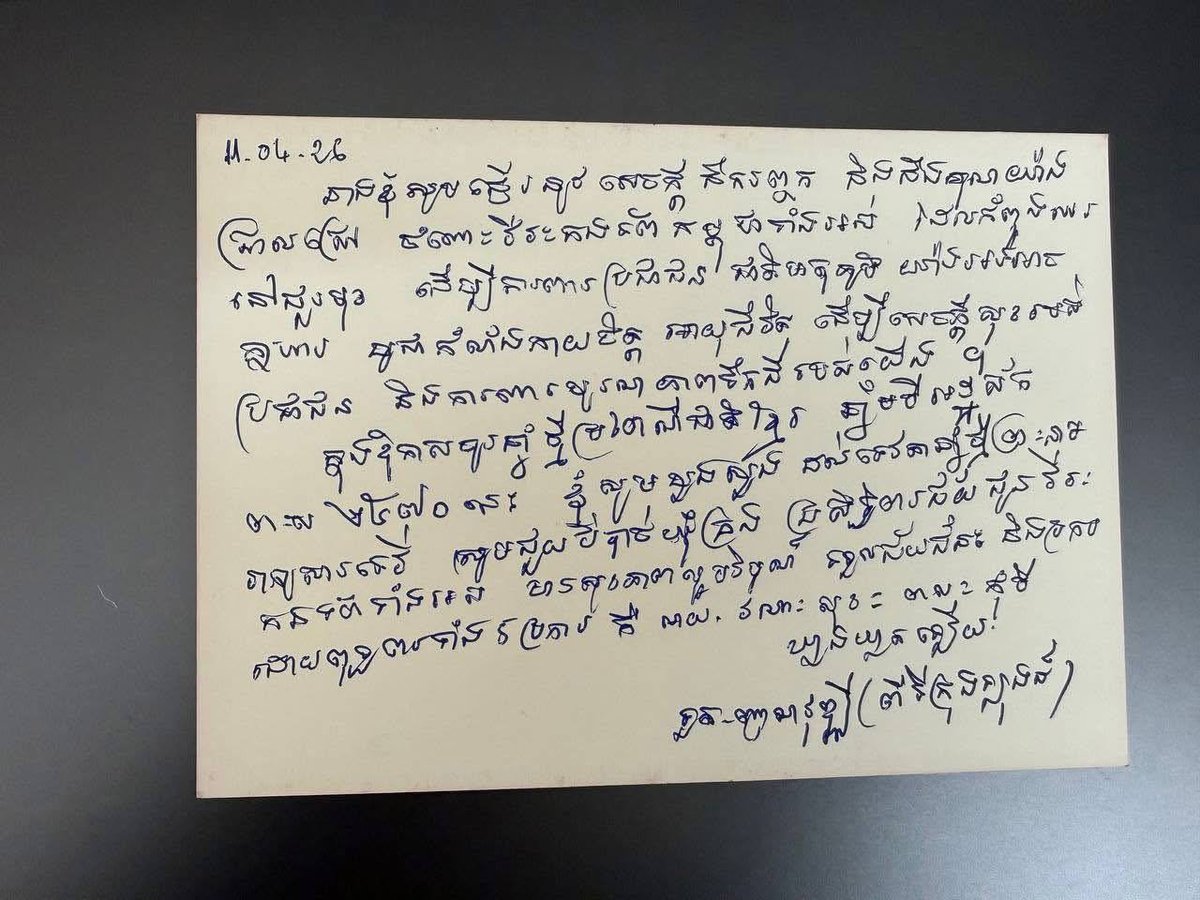 11.04.26
នាងខ្ញុំសូមផ្ញើរនូវ សេចក្តី នឹករព្ញក និងដឹងគុណយ៉ាង
ជ្រាលជ្រៅ ចំពោះវីរៈកងទ័ពកម្ពុជាទាំងអស់ ដែលកំពុងឈរ
នៅជួរមុខ ដើម្បីការពារប្រជាជន ជាតិមាតុភូមិ យ៉ាងអង់អាច
ក្លាហាន បូជាកំលាំងកាយចិត្ត អាយុជីវិត ដើម្បីសេចក្តីសុខរបស់
ប្រជាជន និងការពារបូរណភាពទឹកដីរបស់យើង ។
ក្នុងឱកាសចូលឆ្នាំថ្មីប្រពៃណីជាតិខ្មែរ ឆ្នាំមមី អដ្ឋស័ក
ព.ស ២៥៧០ នេះ ខ្ញុំសូមបួងសួង ដល់ទេវតាឆ្នាំថ្មីព្រះនាម
រាក្យសាទេវី សូមជួយបីបាច់ថែគ្រង ប្រសិទ្ធិពរជ័យ ជូនវីរៈ
កងទ័ពទាំងអស់ មានសុខភាពល្អបរិបូណ៌ ទទួលជ័យជំនះ និងប្រកប
ដោយពុទ្ធពរទាំង ៥ ប្រការ គឺ អាយុ វណ្ណៈ សុខៈ ពលៈ កុំបី
ឃ្លៀងឃ្លាតឡើយ
(ពីទីក្រុងប៉េកាំង)